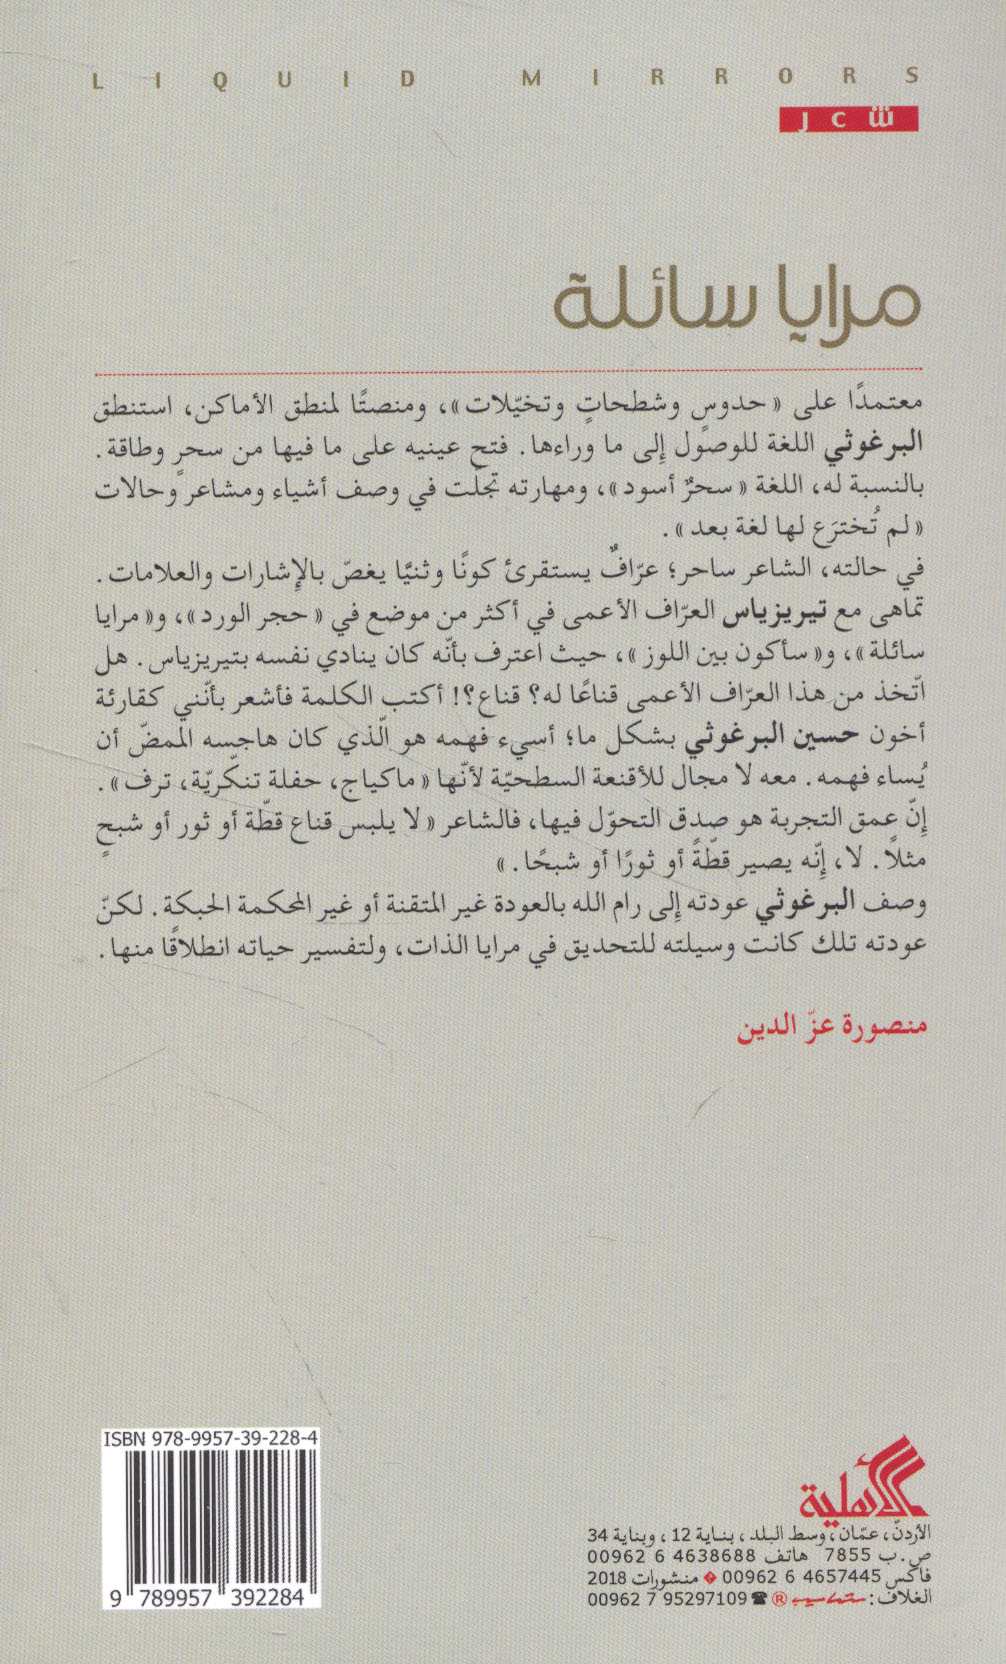 LIQUID MIRRORS
مرايا سائلة
معتمدًا على «حدوسٍ وشطحاتٍ وتخيّلات»، ومنصتًا لمنطق الأماكن، استنطق
البرغوثي اللغة للوصول إلى ما وراءها. فتح عينيه على ما فيها من سحرٍ وطاقة.
بالنسبة له، اللغة «سحرٌ أسود»، ومهارته تجلّت في وصف أشياء ومشاعر وحالات
«لم تُخترَع لها لغة بعد».
في حالته، الشاعر ساحر؛ عرّافٌ يستقرئ كونًا وثنيًا يغصّ بالإشارات والعلامات.
تماهى مع تيريزياس العرّاف الأعمى في أكثر من موضع في «حجر الورد»، و«مرايا
سائلة»، و«سأكون بين اللوز»، حيث اعترف بأنّه كان ينادي نفسه بتيريزياس. هل
اتّخذ من هذا العرّاف الأعمى قناعًا له؟ قناع؟! أكتب الكلمة فأشعر بأنّني كقارئة
أخون حسين البرغوثي بشكل ما؛ أسيء فهمه هو الّذي كان هاجسه الممضّ أن
يُساء فهمه. معه لا مجال للأقنعة السطحيّة لأنّها «ماكياج، حفلة تنكّريّة، ترف».
إنّ عمق التجربة هو صدق التحوّل فيها، فالشاعر «لا يلبس قناع قطّة أو ثور أو شبحٍ
مثلاً. لا، إنّه يصير قطّةً أو ثورًا أو شبحًا.»
وصف البرغوثي عودته إلى رام الله بالعودة غير المتقنة أو غير المحكمة الحبكة. لكنّ
عودته تلك كانت وسيلته للتحديق في مرايا الذات، ولتفسير حياته انطلاقًا منها.
منصورة عزّ الدين
ISBN 978-9957-39-228-4
9 789957 392284
الأهلية
الأردنّ، عمّان، وسط البلد، بناية 12، وبناية 34
ص.ب 7855 هاتف 00962 6 4638688
فاكس 00962 6 4657445 منشورات 2018
الغلاف: ® 00962 7 95297109